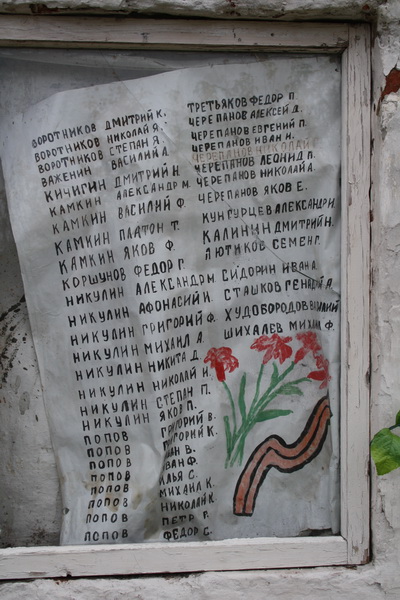 ВОРОТНИКОВ ДМИТРИЙ К.
ВОРОТНИКОВ НИКОЛАЙ Я.
ВОРОТНИКОВ СТЕПАН Я.
ВАЖЕНИН ВАСИЛИЙ А.
КИЧИГИН ДМИТРИЙ Н.
КАМКИН АЛЕКСАНДР М.
КАМКИН ВАСИЛИЙ Ф.
КАМКИН ПЛАТОН Т.
КАМКИН ЯКОВ Ф.
КОРШУНОВ ФЕДОР Г.
НИКУЛИН АЛЕКСАНДР Н
НИКУЛИН АФОНАСИЙ И.
НИКУЛИН ГРИГОРИЙ Ф.
НИКУЛИН МИХАИЛ А.
НИКУЛИН НИКИТА Д.
НИКУЛИН НИКОЛАЙ Н.
НИКУЛИН СТЕПАН П.
НИКУЛИН ЯКОВ П.
ПОПОВ ГРИГОРИЙ В.
ПОПОВ ГРИГОРИЙ К.
ПОПОВ ИВАН В.
ПОПОВ ИВАН Ф.
ПОПОВ ИЛЬЯ С.
ПОПОВ МИХАИЛ К.
ПОПОВ НИКОЛАЙ К.
ПОПОВ ПЕТР
ПОПОВ ФЕДОР С.
ТРЕТЬЯКОВ ФЕДОР П.
ЧЕРЕПАНОВ АЛЕКСЕЙ Д.
ЧЕРЕПАНОВ ЕВГЕНИЙ П.
ЧЕРЕПАНОВ ИВАН Н.
ЧЕРЕПАНОВ НИКОЛАЙ
ЧЕРЕПАНОВ ЛЕОНИД П.
ЧЕРЕПАНОВ НИКОЛАЙ А.
ЧЕРЕПАНОВ ЯКОВ Е.
КУНГУРЦЕВ АЛЕКСАНДР И.
КАЛИНИН ДМИТРИЙ Н.
ЛЮТИКОВ СЕМЕН Г.
СИДОРИН ИВАН А.
СТАШКОВ ГЕНАДИЙ А.
ХУДОБОРОДОВ ВАСИЛИЙ
ШИХАЛЕВ МИХАИЛ Ф.